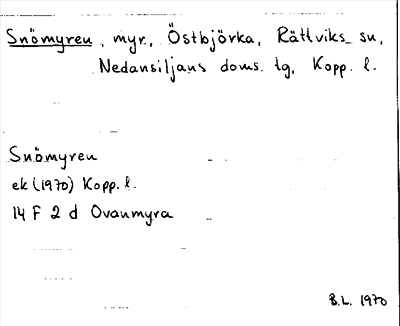 Snömyren, myr, Östbjörka, Rättviks sn,
Nedansiljans doms. tg, Kopp. l.
Snömyren
ek (1970) Kopp. l.
14 F 2 d Ovanmyra
B.L. 1970